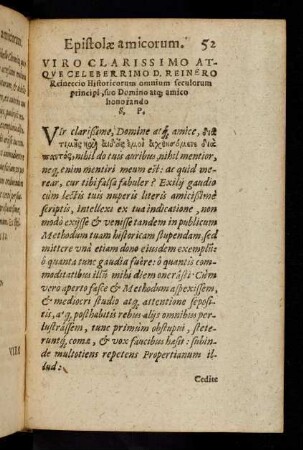 Epistolæ amicorum. 52
VIRO CLARISSIMO AT-
QVE CELEBERRIMO D. REINERO
Reineccio Historicorum omnium seculorum
principi, suo Domino atq; amico
honorando
S. P.
Vir clarissime, Domine atq; amice,
nihil do tuis auribus, nihil mentior,
neq; enim mentiri meum est: at quid me-
rear, cur tibi falsa fabuler? Exilij gaudio
cùm lectis tuis nuperis literis amicißimè
scriptis, intellexi ex tua indicatione, non
modò exijsse & venisse tandem in publicum
Methodum tuam historicam stupendam, sed
mittere vnà etiam dono eiusdem exemplũ:
ô quanta tunc gaudia fuêre: ô quantis com-
moditatibus illũ mihi diem onerâsti: Cùm
vero aperto fasce & Methodum aspexissem,
& mediocri studio atq; attentione seposi-
tis, atq; posthabitis rebus alijs omnibus per-
lustrâssem, tunc primùm obstupui, stete-
runtq; comæ, & vox faucibus hæsit: subin-
de multotiens repetens Propertianum il-
lud:
Cedite
VIRI